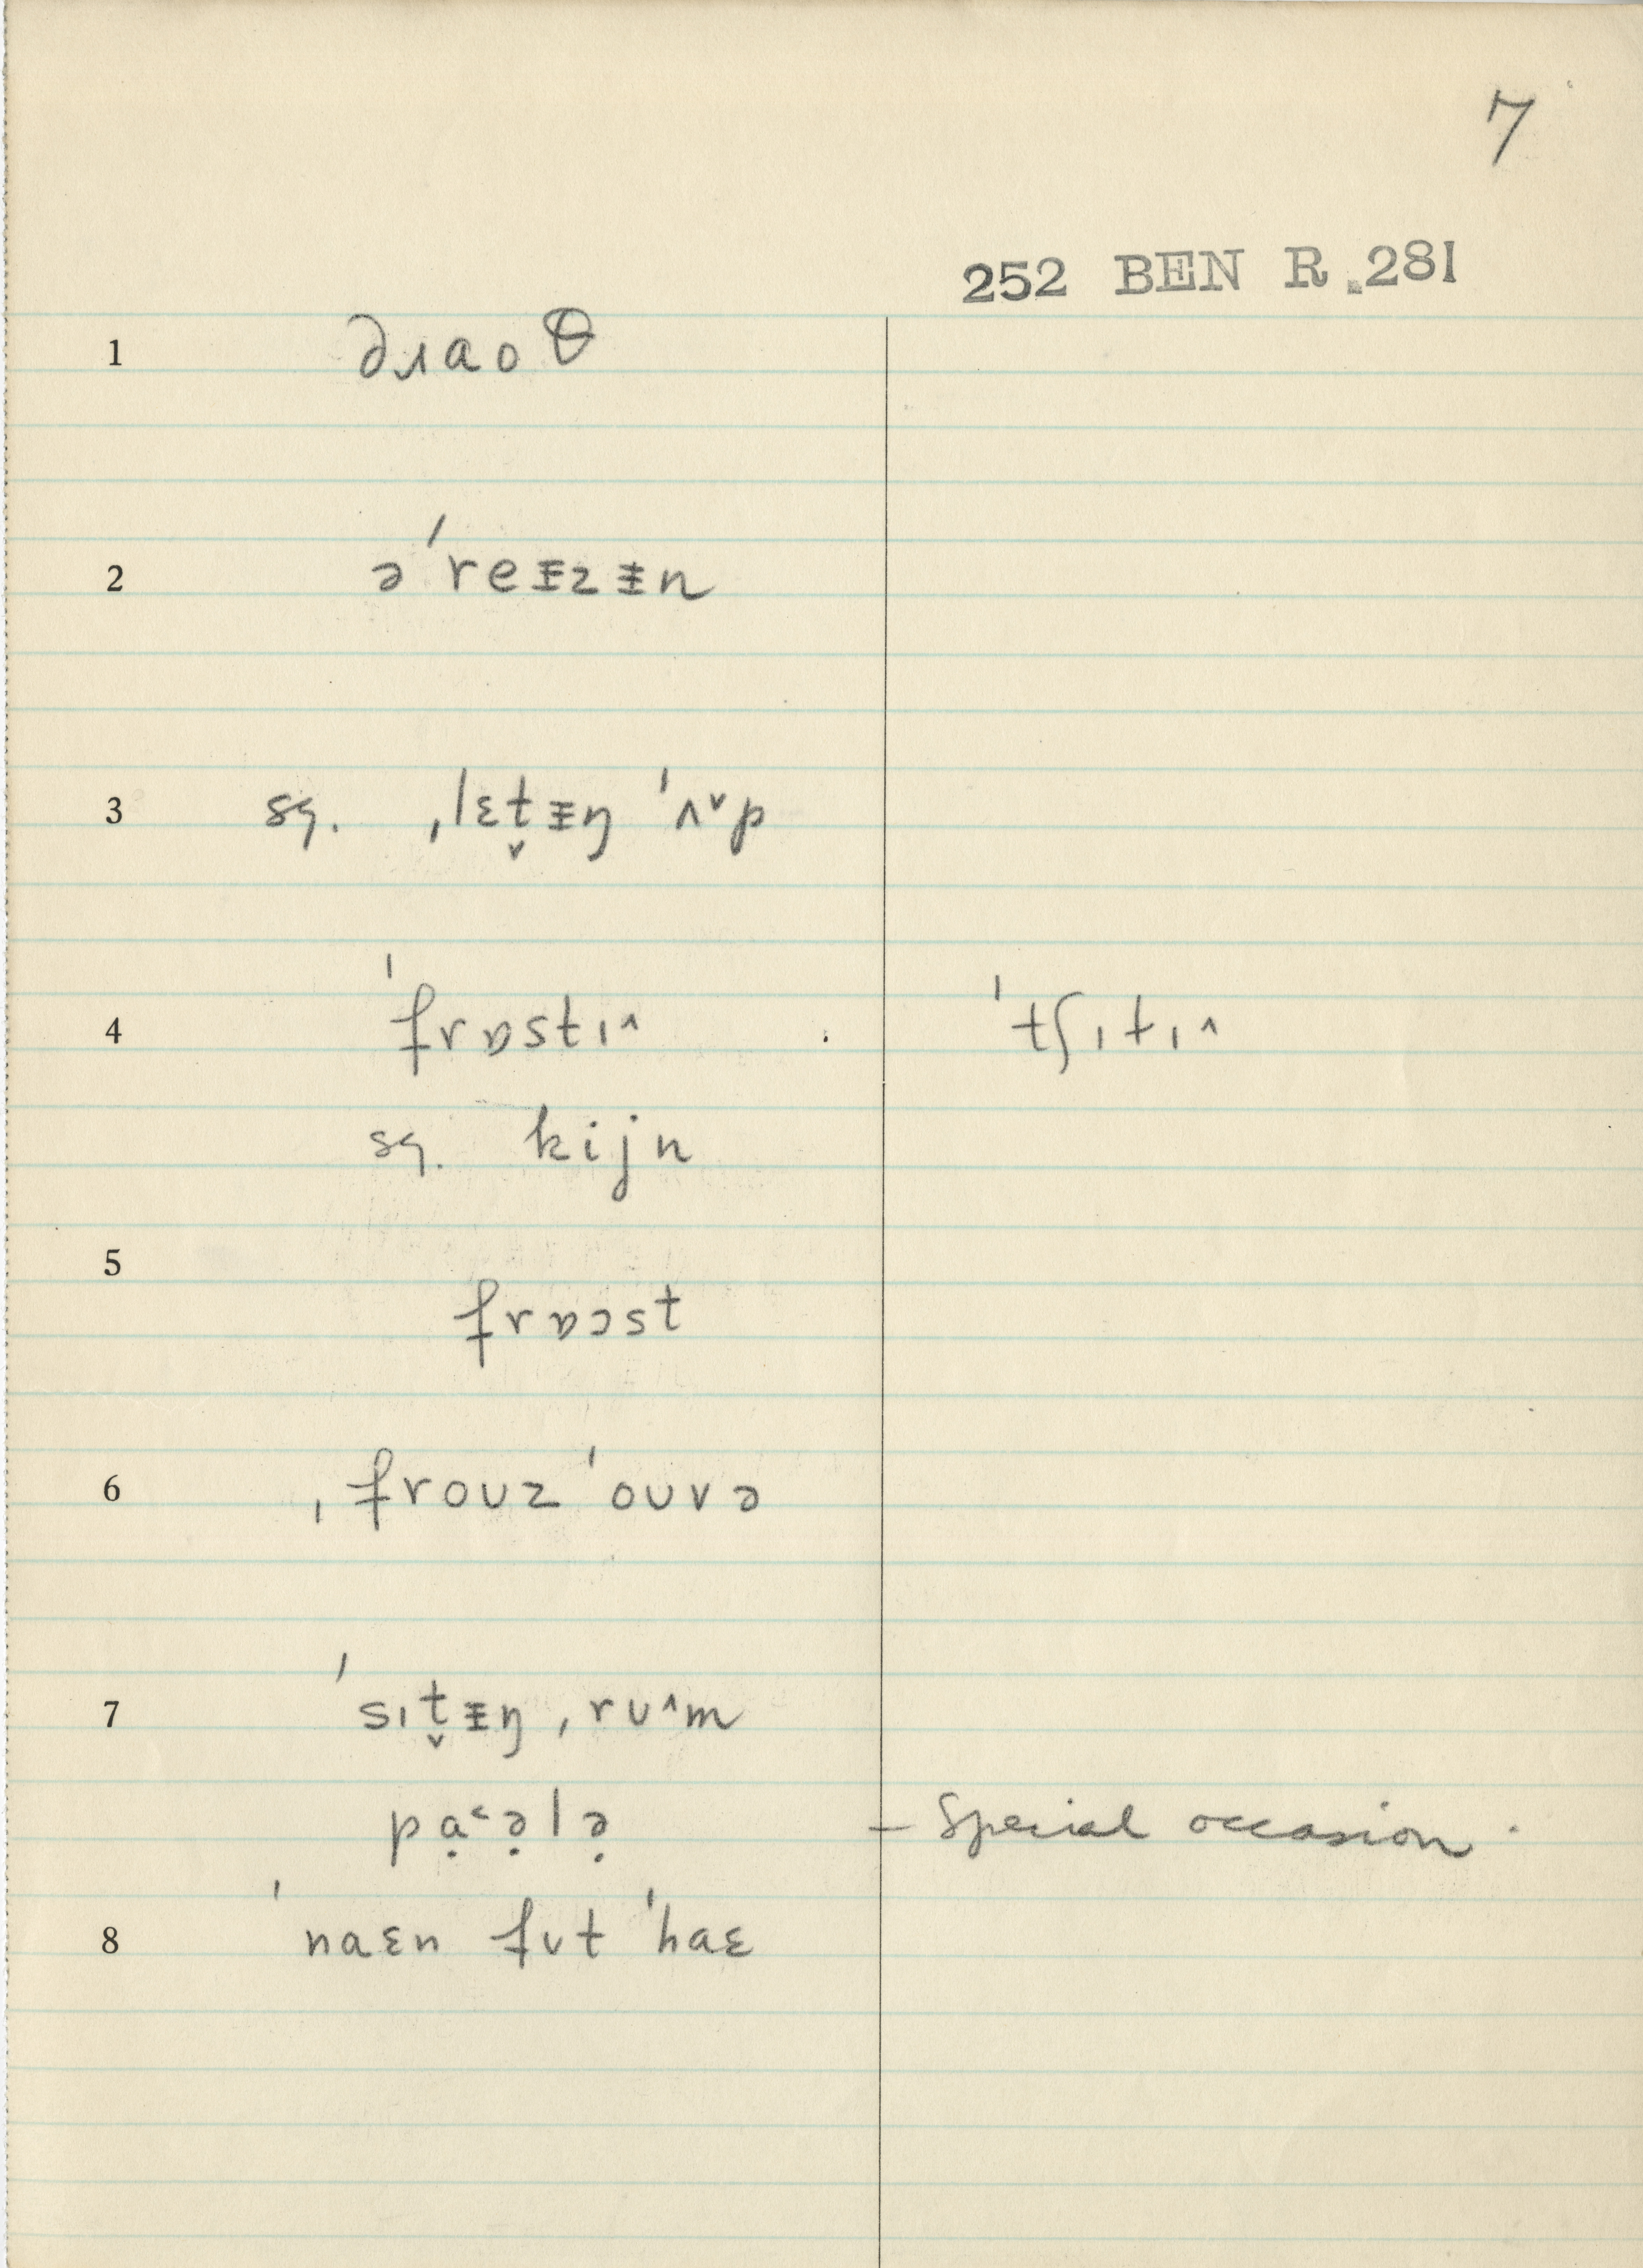 7
252 BEN R.281
1 ðɹaoθ
2 əˈreᵻzᵻn
3 sq. ˌlɛt̬ᵻŋ ˈʌ˅p
4 ˈfrɒstɪ˄ ˈtʃɪtɪ˄
sq. kijn
5 frɒɔst
6 ˌfroʊzˈoʊvə
7 ˈsɪt̬ᵻŋ ˌrʊ˄m
pạ˂ə̣lə̣ – Special occasion.
8 ˈnaɛn fʊt ˈhaɛ